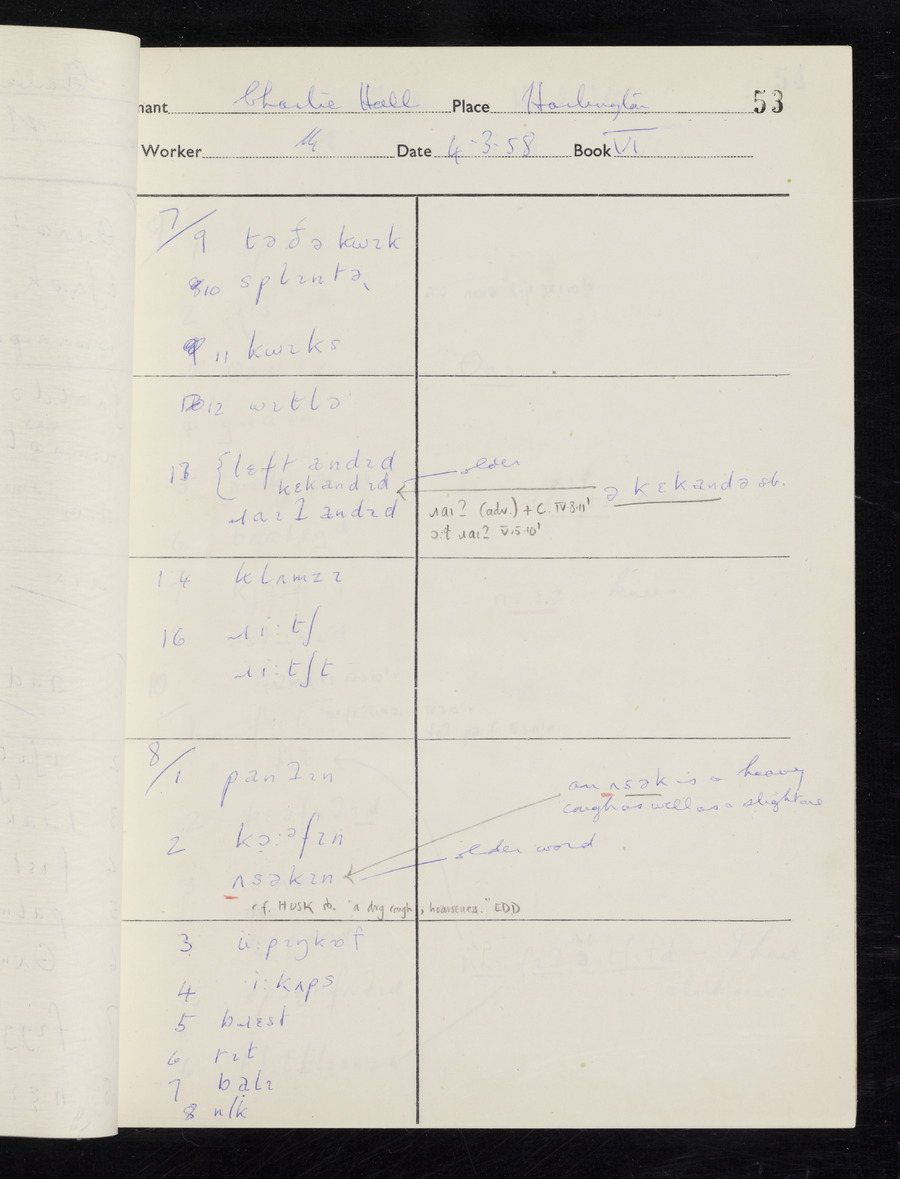 nant Charlie Hall Place Harlington 53
Worker Date 4·3·58 Book VI
7/9 tə ðə kwɪk
10 splɪntə
11 kwɪks
12 wɪtlə
13 {lɛft andɪd older
kɛkandɪd ə kɛkandə sb.
ɹaɪʔ andɪd ɹaɪʔ (adv.) + C. IV·8·11'
ɔ:ɫ ɹaɪʔ V·5·10'
14 klʌmzɪ
16 ɹi:tʃ
ɹi:tʃt
8/1 panʔɪn
an ʌsək is a heavy
cough as well as a slight one
2 kɔ̣:əfɪn older word
ʌsəkɪn
cf. HUSK sb. "a dry cough; hoarseness." EDD
3 u:pɪŋkɒf
4 i:kʌps
5 bɹɛst
6 tɪt
7 bɛlɪ
8